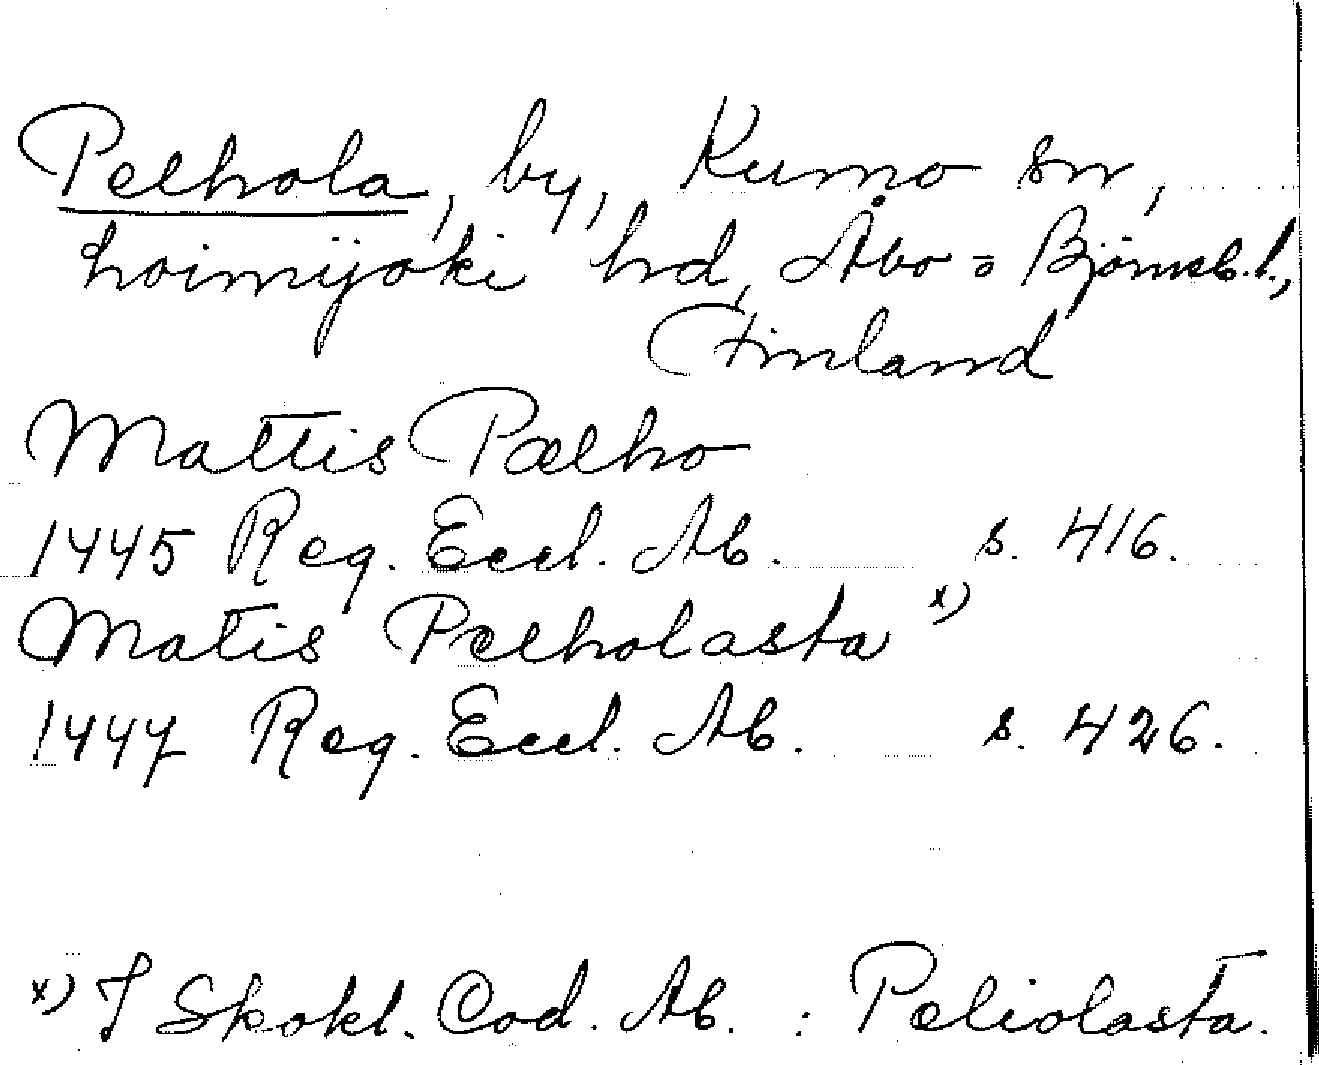 Pelhola, by, Kumo sn,
Loimijoki hd, Åbo = Björneb. l.,
Finland
Mattis Pælho
1445 Reg. Eccl. Ab. s. 416.
Matis Pelholasta x)
1447 Reg. Eccl. Ab. s. 426.
x) I Skokl. Cod. Ab. : Peliolasta.